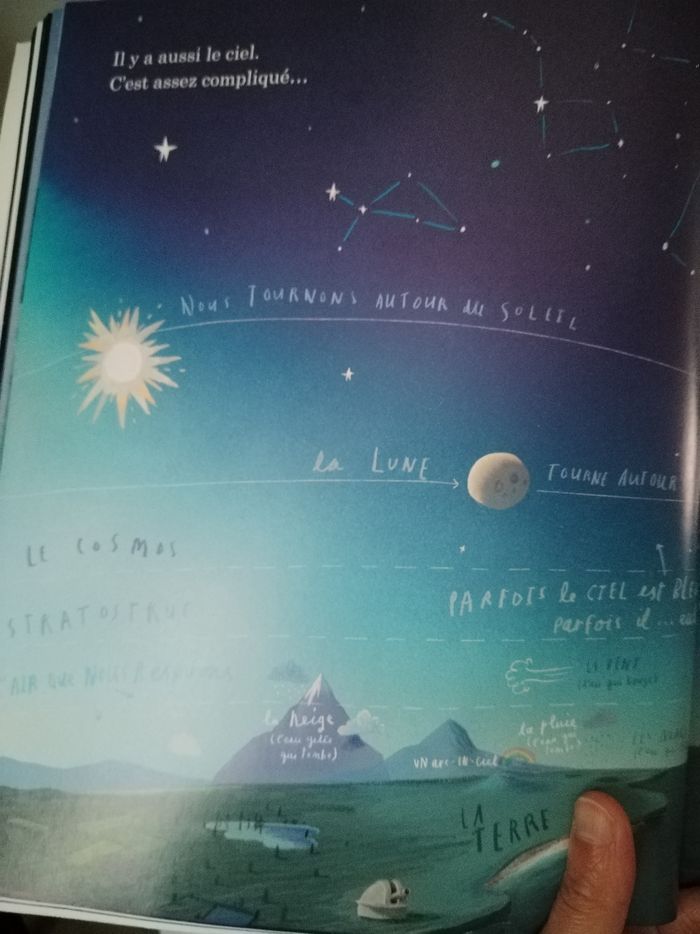 Il y a aussi le ciel.
C'est assez compliqué...
NOUS TOURNONS AUTOUR du SOLEIL
la LUNE
TOURNE AUTOUR
LE COSMOS
STRATOSTRUC
PARFOIS le CIEL est
parfois il...
AIR que NOUS Respirons
LE VENT
(l'air qui bouge)
la Neige
(l'eau gelée
qui tombe)
la pluie
(l'eau qui
tombe)
UN arc-IN-Ciel
LA
TERRE